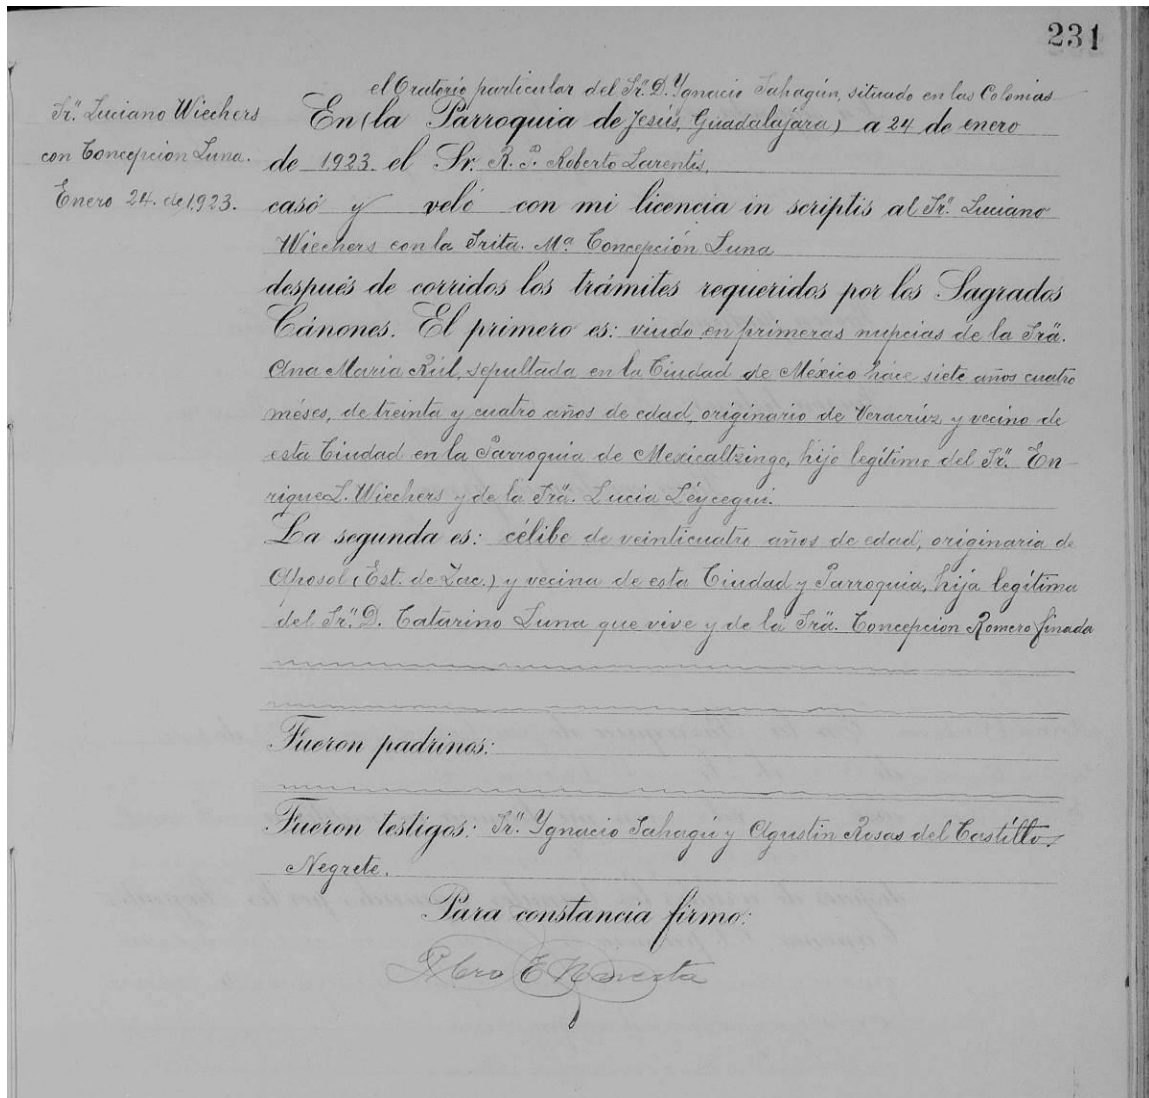 231
Sr. Luciano Wiechers
con Concepcion Luna.
Enero 24. de 1923.
el Oratorio particular del Sr. D. Ygnacio Sahagún, situado en las Colonias
En (la Parroquia de Jesús, Guadalajara) a 24 de enero
de 1923. el Sr. R. P. Roberto Larentis,
casó y veló con mi licencia in scriptis al Sr. Luciano
Wiechers con la Srita. Ma. Concepción Luna
después de corridos los trámites requeridos por los Sagrados
Cánones. El primero es: viudo en primeras nupcias de la Sra.
Ana Maria Rúl, sepultada en la Ciudad de México hace siete años cuatro
méses, de treinta y cuatro años de edad, originario de Veracrúz y vecino de
esta Ciudad en la Parroquia de Mexicaltzingo, hijo legítimo del Sr. En-
rique L. Wiechers y de la Sra. Lucia Léycegui.
La segunda es: célibe de veinticuatro años de edad, originaria de
Aposol (Est. de Zac.) y vecina de esta Ciudad y Parroquia, hija legítima
del Sr. D. Catarino Luna que vive y de la Sra. Concepcion Romero finada
Fueron padrinos:
Fueron testigos: Sr. Ygnacio Sahagú y Agustin Rosas del Castíllo.
Negrete.
Para constancia firmo:
Pbro E